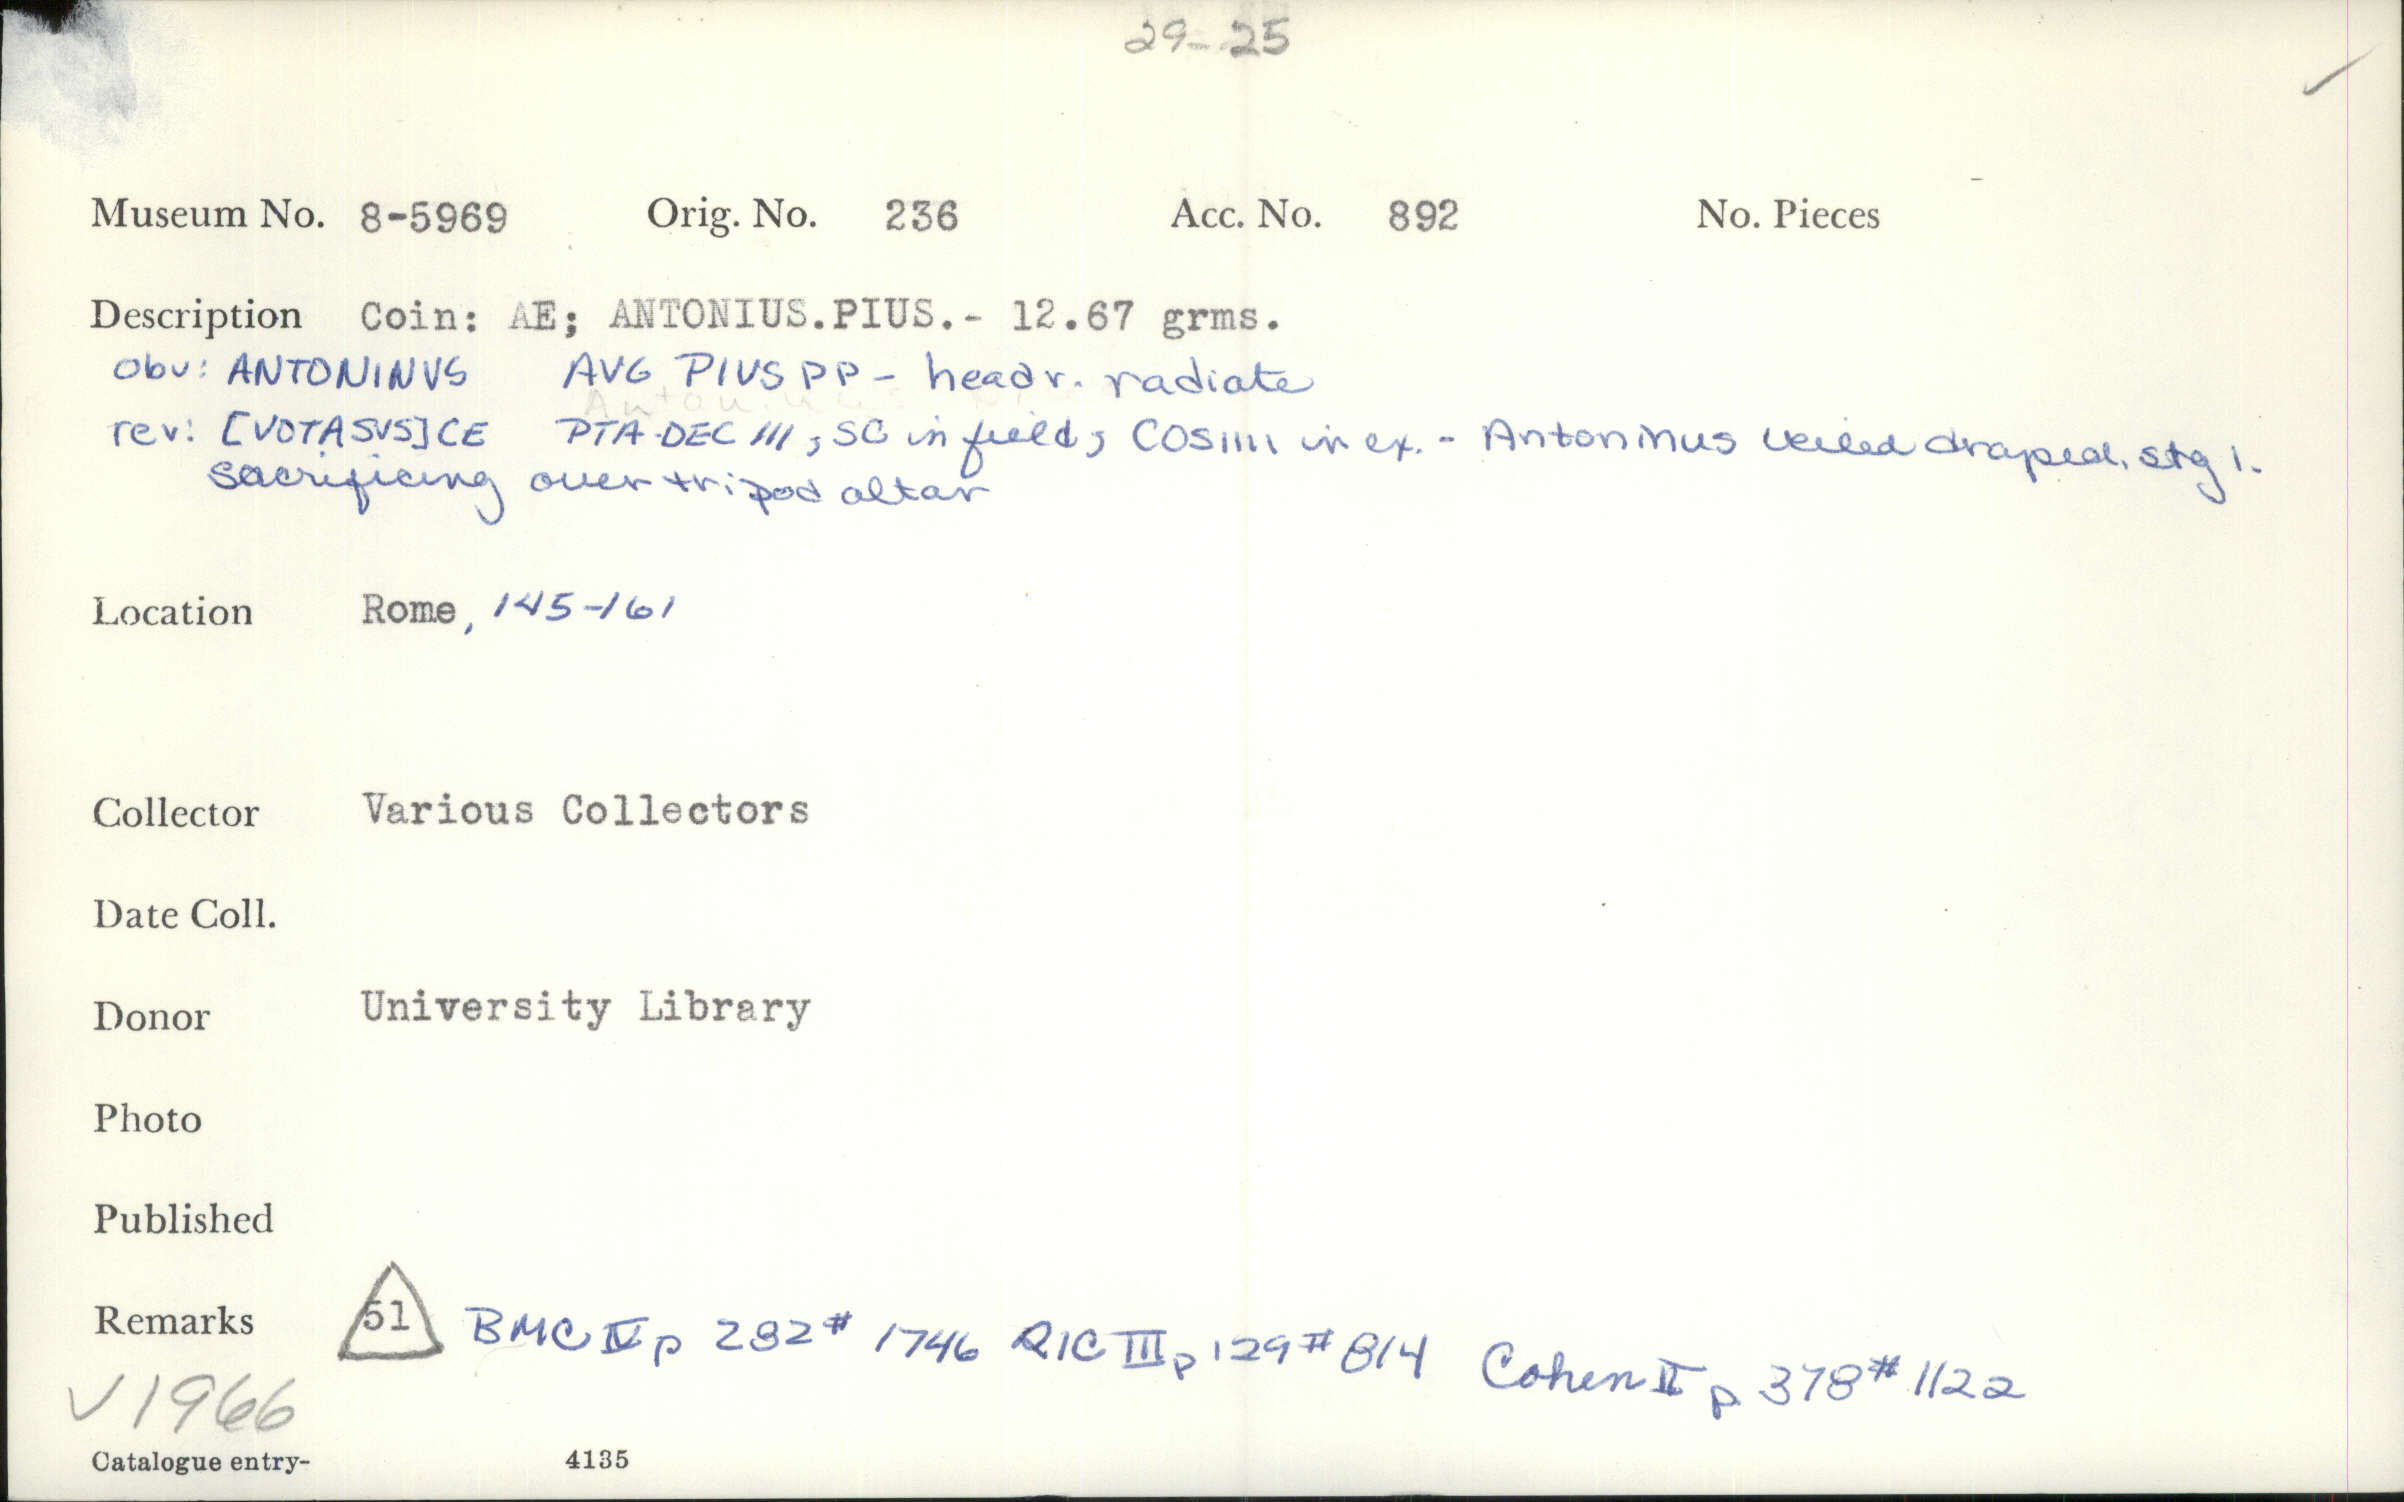 29-25
Museum No. 8-5969 Orig. No. 236 Acc. No. 892 No. Pieces
Description Coin: AE; ANTONIUS.PIUS.- 12.67 grms.
obv: ANTONINVS AVG PIVS PP - head r. radiate
rev: [VOTASVS]CE PTA DEC III, SC in field; COSIIII in ex. - Antoninus veiled draped, stg l.
sacrificing over tripod altar
Location Rome, 145-161
Collector Various Collectors
Date Coll.
Donor University Library
Photo
Published
Remarks 51 BMC IV p 282 # 1746 RIC III p 129 # 814 Cohen II p 378 # 1122
✓1966
Catalogue entry- 4135